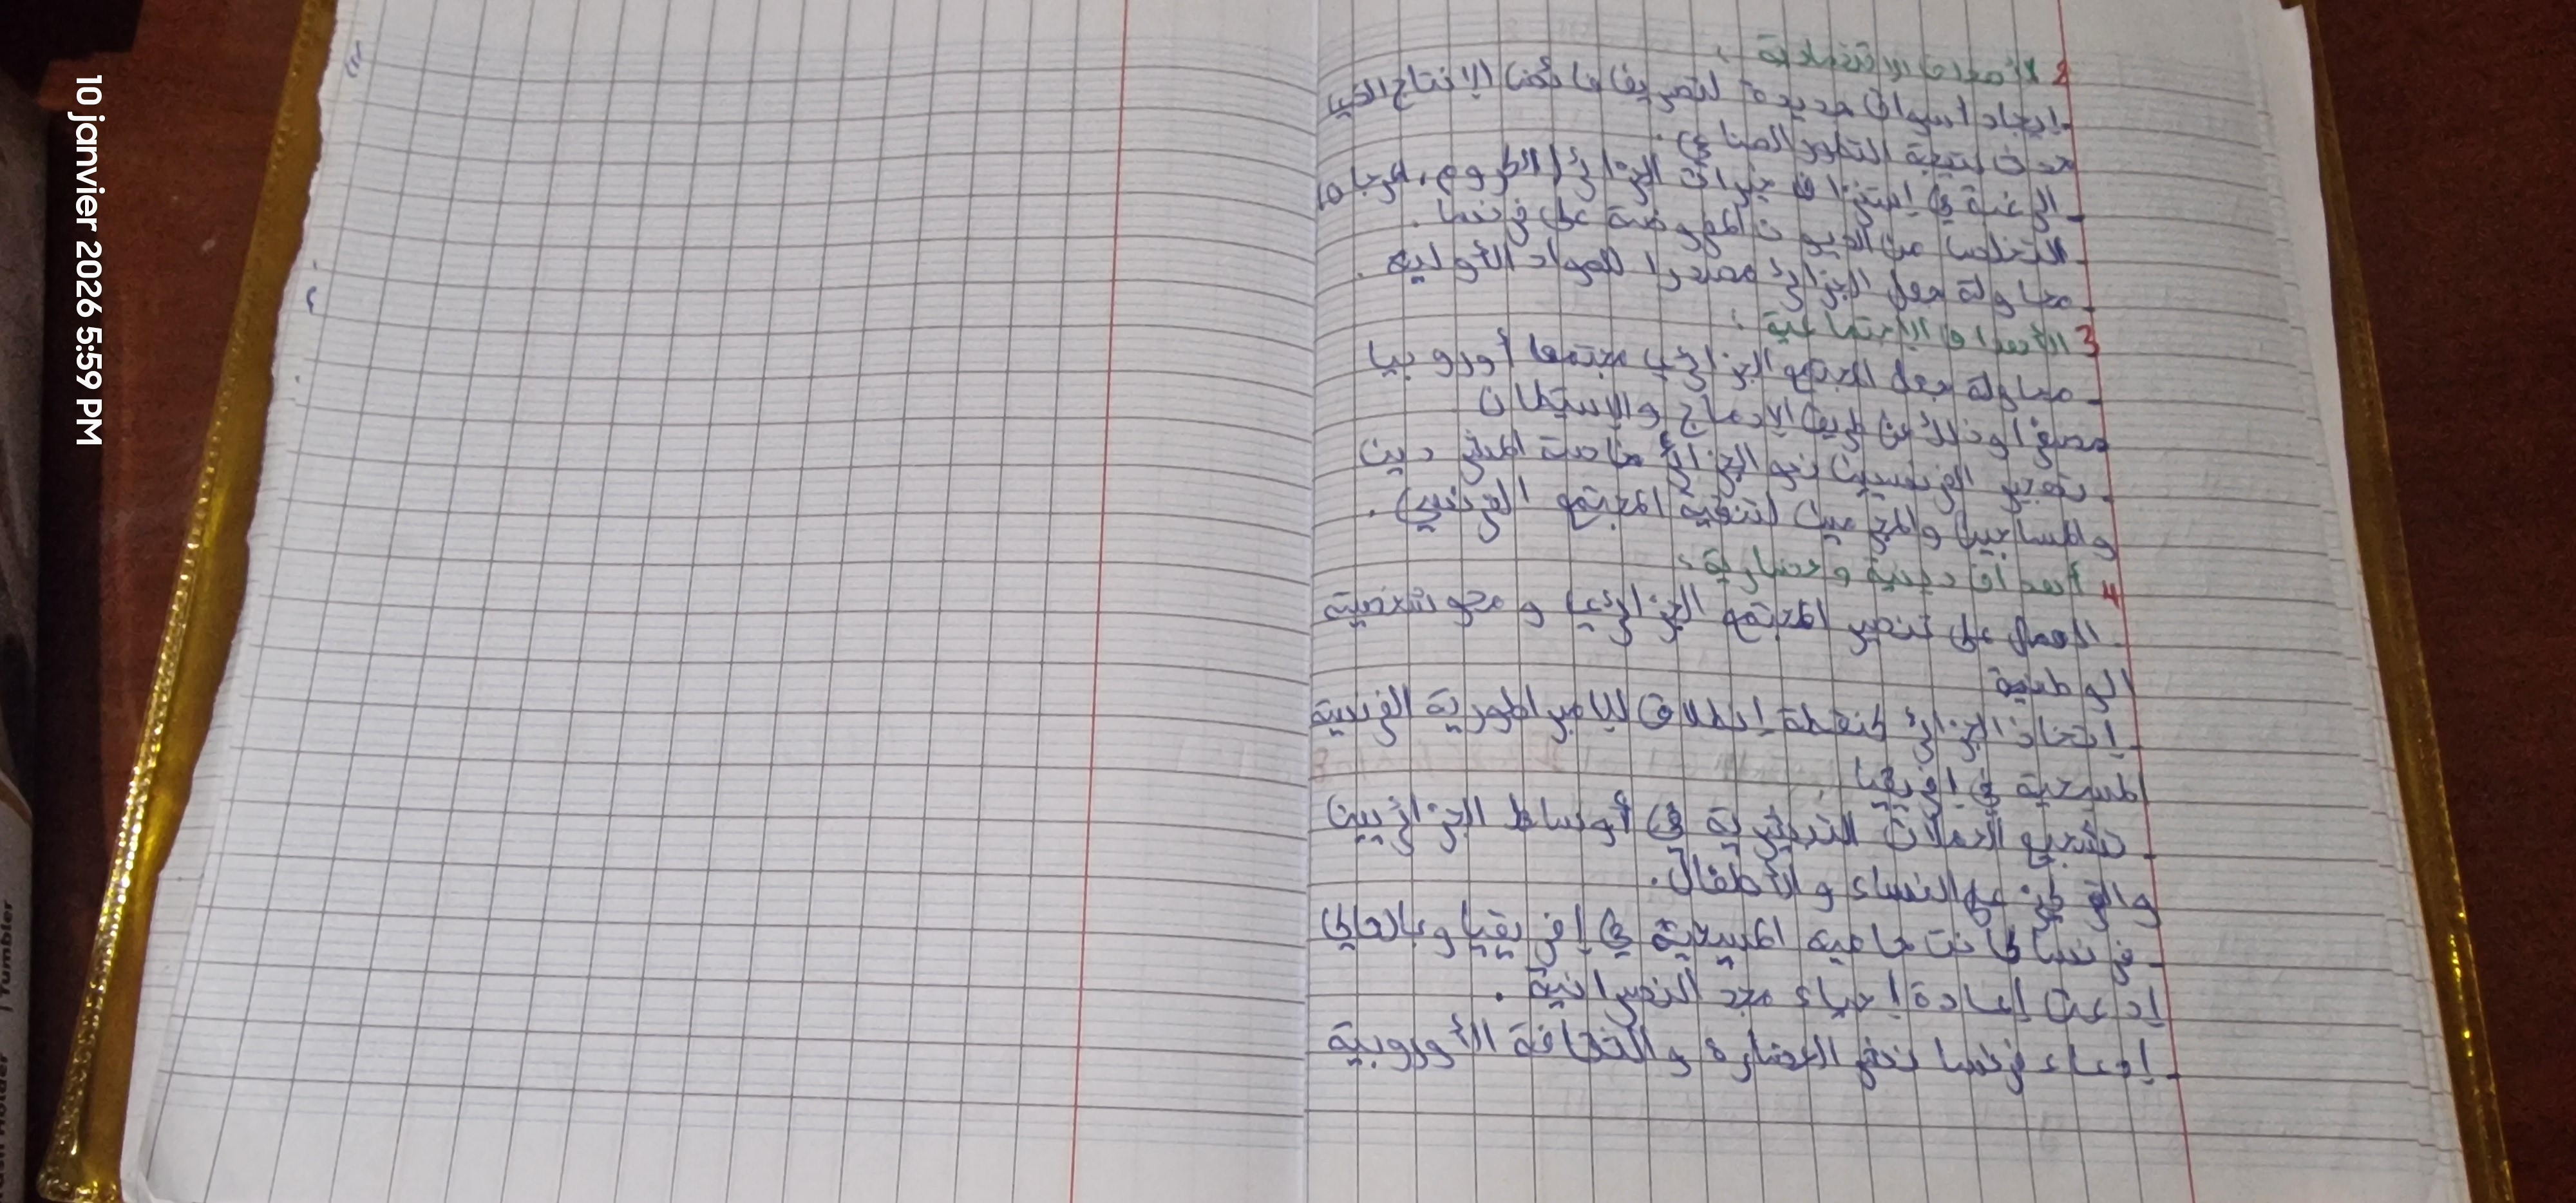 2 الأهداف الاقتصادية :
- إيجاد أسواق جديدة لتصريف فائض الإنتاج الذي
حدث نتيجة التطور الصناعي.
- الرغبة في استنزاف خيرات الجزائر
- التخلص من الديون المفروضة على فرنسا.
- محاولة جعل الجزائر مصدرا للمواد الأولية.
3 الأهداف الاجتماعية :
- محاولة جعل المجتمع الجزائري مجتمعا أوروبيا
عن طريق الإدماج والإستيطان
- تهجير الفرنسيين نحو الجزائر خاصة
والمساجين والمجرمين (لتنقية المجتمع الفرنسي).
4 أهداف دينية وحضارية :
- العمل على تنصير المجتمع الجزائري ومحو شخصيته
الوطنية
- إتخاذ الجزائر كنقطة إنطلاق للإمبراطورية الفرنسية
المسيحية في إفريقيا
- تشجيع الحملات التبشيرية في أوساط الجزائريين
والتركيز على النساء والأطفال.
- فرنسا كانت حامية المسيحية في إفريقيا
إدعت إعادة إحياء مجد النصرانية.
- إدعاء فرنسا نشر الحضارة والثقافة الأوروبية
10 janvier 2026 5:59 PM
Tumbler
Holder